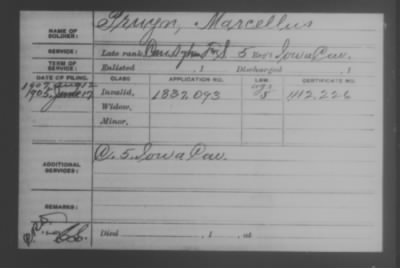 Pruyn, Marcellus
NAME OF SOLDIER:
SERVICE: Late rank, F & S 5 Reg't Iowa Cav.
TERM OF SERVICE: Enlisted , 1 Discharged , 1
DATE OF FILING. CLASS APPLICATION NO. LAW CERTIFICATE NO.
1905 June 17 Invalid, 1332.093 412.226
Widow,
Minor,
C. 5. Iowa Cav.
ADDITIONAL SERVICES:
REMARKS:
Died , 1 , at